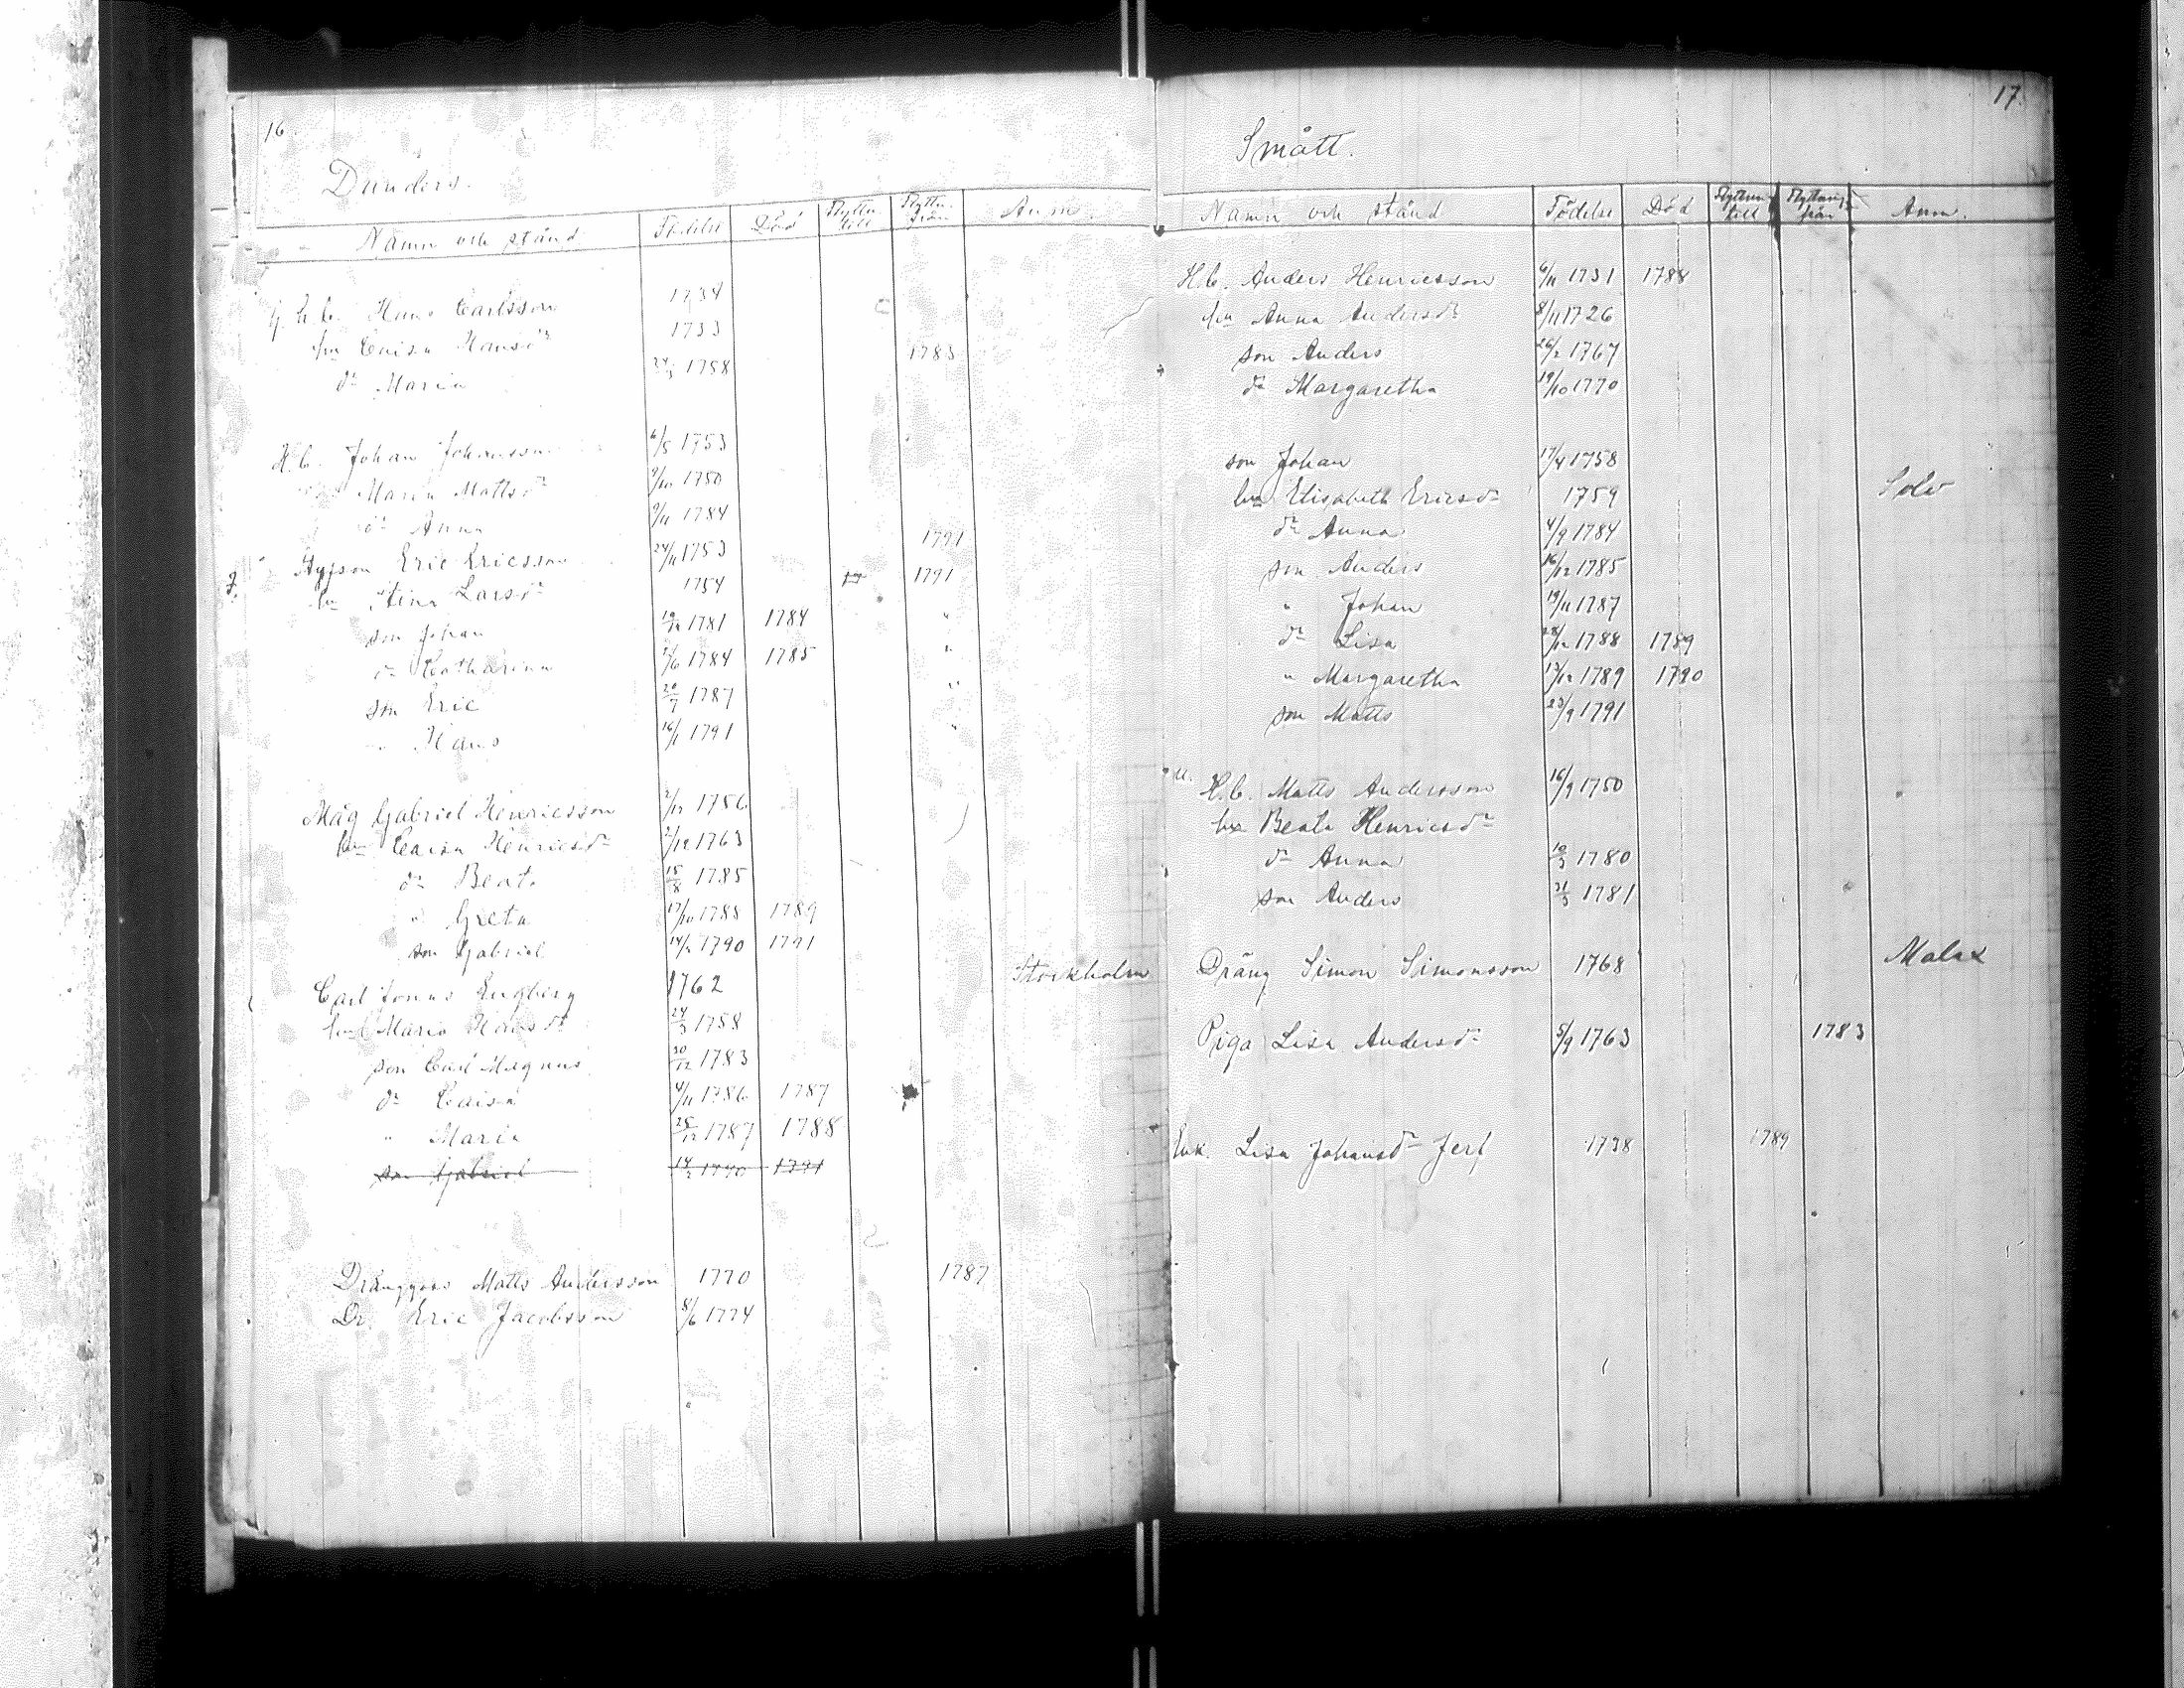 16.
Dunders.
Namn och stånd Födelse Död Flyttn. till Flyttn. från Anm.
G. h. b. Hans Carlsson 1734
hu Caisa Hansdr 1733
dr Maria 24/3 1758 1783
H.b. Johan Johansson 6/5 1753
Maria Mattsdr 9/10 1750
dr Anna 9/11 1784
Styfson Eric Ericsson 24/11 1753 1791
hu Stina Larsdr 1754 1791
son Johan 19/12 1781 1784 "
dr Catharina 2/6 1784 1785 "
son Eric 20/7 1787 "
" Hans 16/1 1791 "
Måg Gabriel Henricsson 2/12 1756
hu Caisa Henricsdr 2/12 1763
dr Beata 15/8 1785
" Greta 17/10 1788 1789
son Gabriel 14/2 1790 1791
Carl Jonas Engberg 1762 Stockholm
hu Maria Hansdr 24/3 1758
son Carl Magnus 30/12 1783
dr Caisa 4/11 1786 1787
" Maria 25/12 1787 1788
son Gabriel 14/2 1790 1791
Dränggoss Matts Andersson 1770 1787
Dr. Eric Jacobsson 8/6 1774
17.
Smått.
Namn och stånd Födelse Död Flyttning till Flyttning från Anm.
H.b. Anders Henricsson 6/11 1731 1788
hu Anna Andersdr 8/11 1726
son Anders 26/2 1767
dr Margaretha 19/10 1770
son Johan 17/4 1758
hu Elisabeth Ericsdr 1759 Solv
dr Anna 4/9 1784
son Anders 16/12 1785
" Johan 19/11 1787
dr Lisa 28/12 1788 1789
" Margaretha 13/12 1789 1790
son Matts 23/9 1791
u. H.b. Matts Andersson 16/9 1750
hu Beata Henricsdr
dr Anna 10/3 1780
son Anders 31/3 1781
Dräng Simon Simonsson 1768 Malax
Piga Lisa Andersdr 5/9 1763 1783
Enk. Lisa Johansdr Jerf 1738 1789